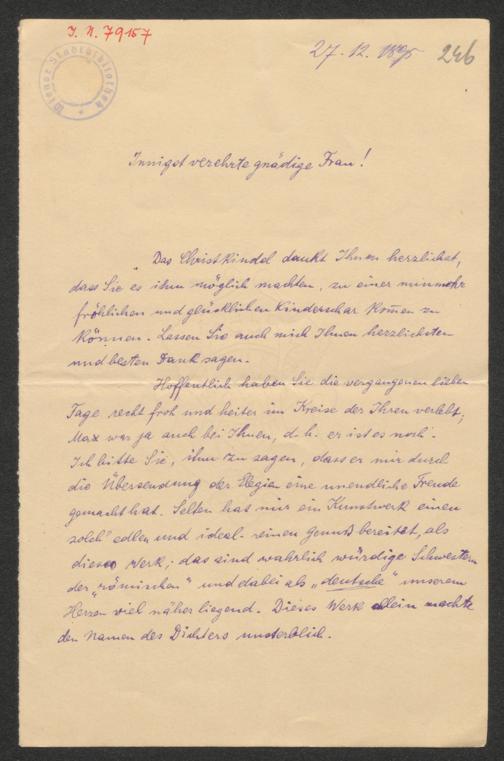 I. N. 79157
Wiener Stadtbibliothek
27. 12. 1895 246
Innigst verehrte gnädige Frau!
Das Christkindel dankt Ihnen herzlichst,
dass Sie es ihm möglich machten, zu einer nunmehr
fröhlichen und glücklichen Kinderschar kom̄en zu
können. Lassen Sie auch mich Ihnen herzlichsten
und besten Dank sagen.
Hoffentlich haben Sie die vergangenen lieben
Tage recht froh und heiter im Kreise der Ihren verlebt;
Max war ja auch bei Ihnen, d. h. er ist es noch.
Ich bitte Sie, ihm zu sagen, dass er mir durch
die Übersendung der Elegien eine unendliche Freude
gemacht hat. Selten hat mir ein Kunstwerk einen
solch' edlen und ideal-reinen Genuß bereitet, als
dieses Werk; das sind wahrlich würdige Schwestern
der „römischen" und dabei als „deutsche" unserem
Herzen viel näher liegend. Dieses Werk allein machte
den Namen des Dichters unsterblich.